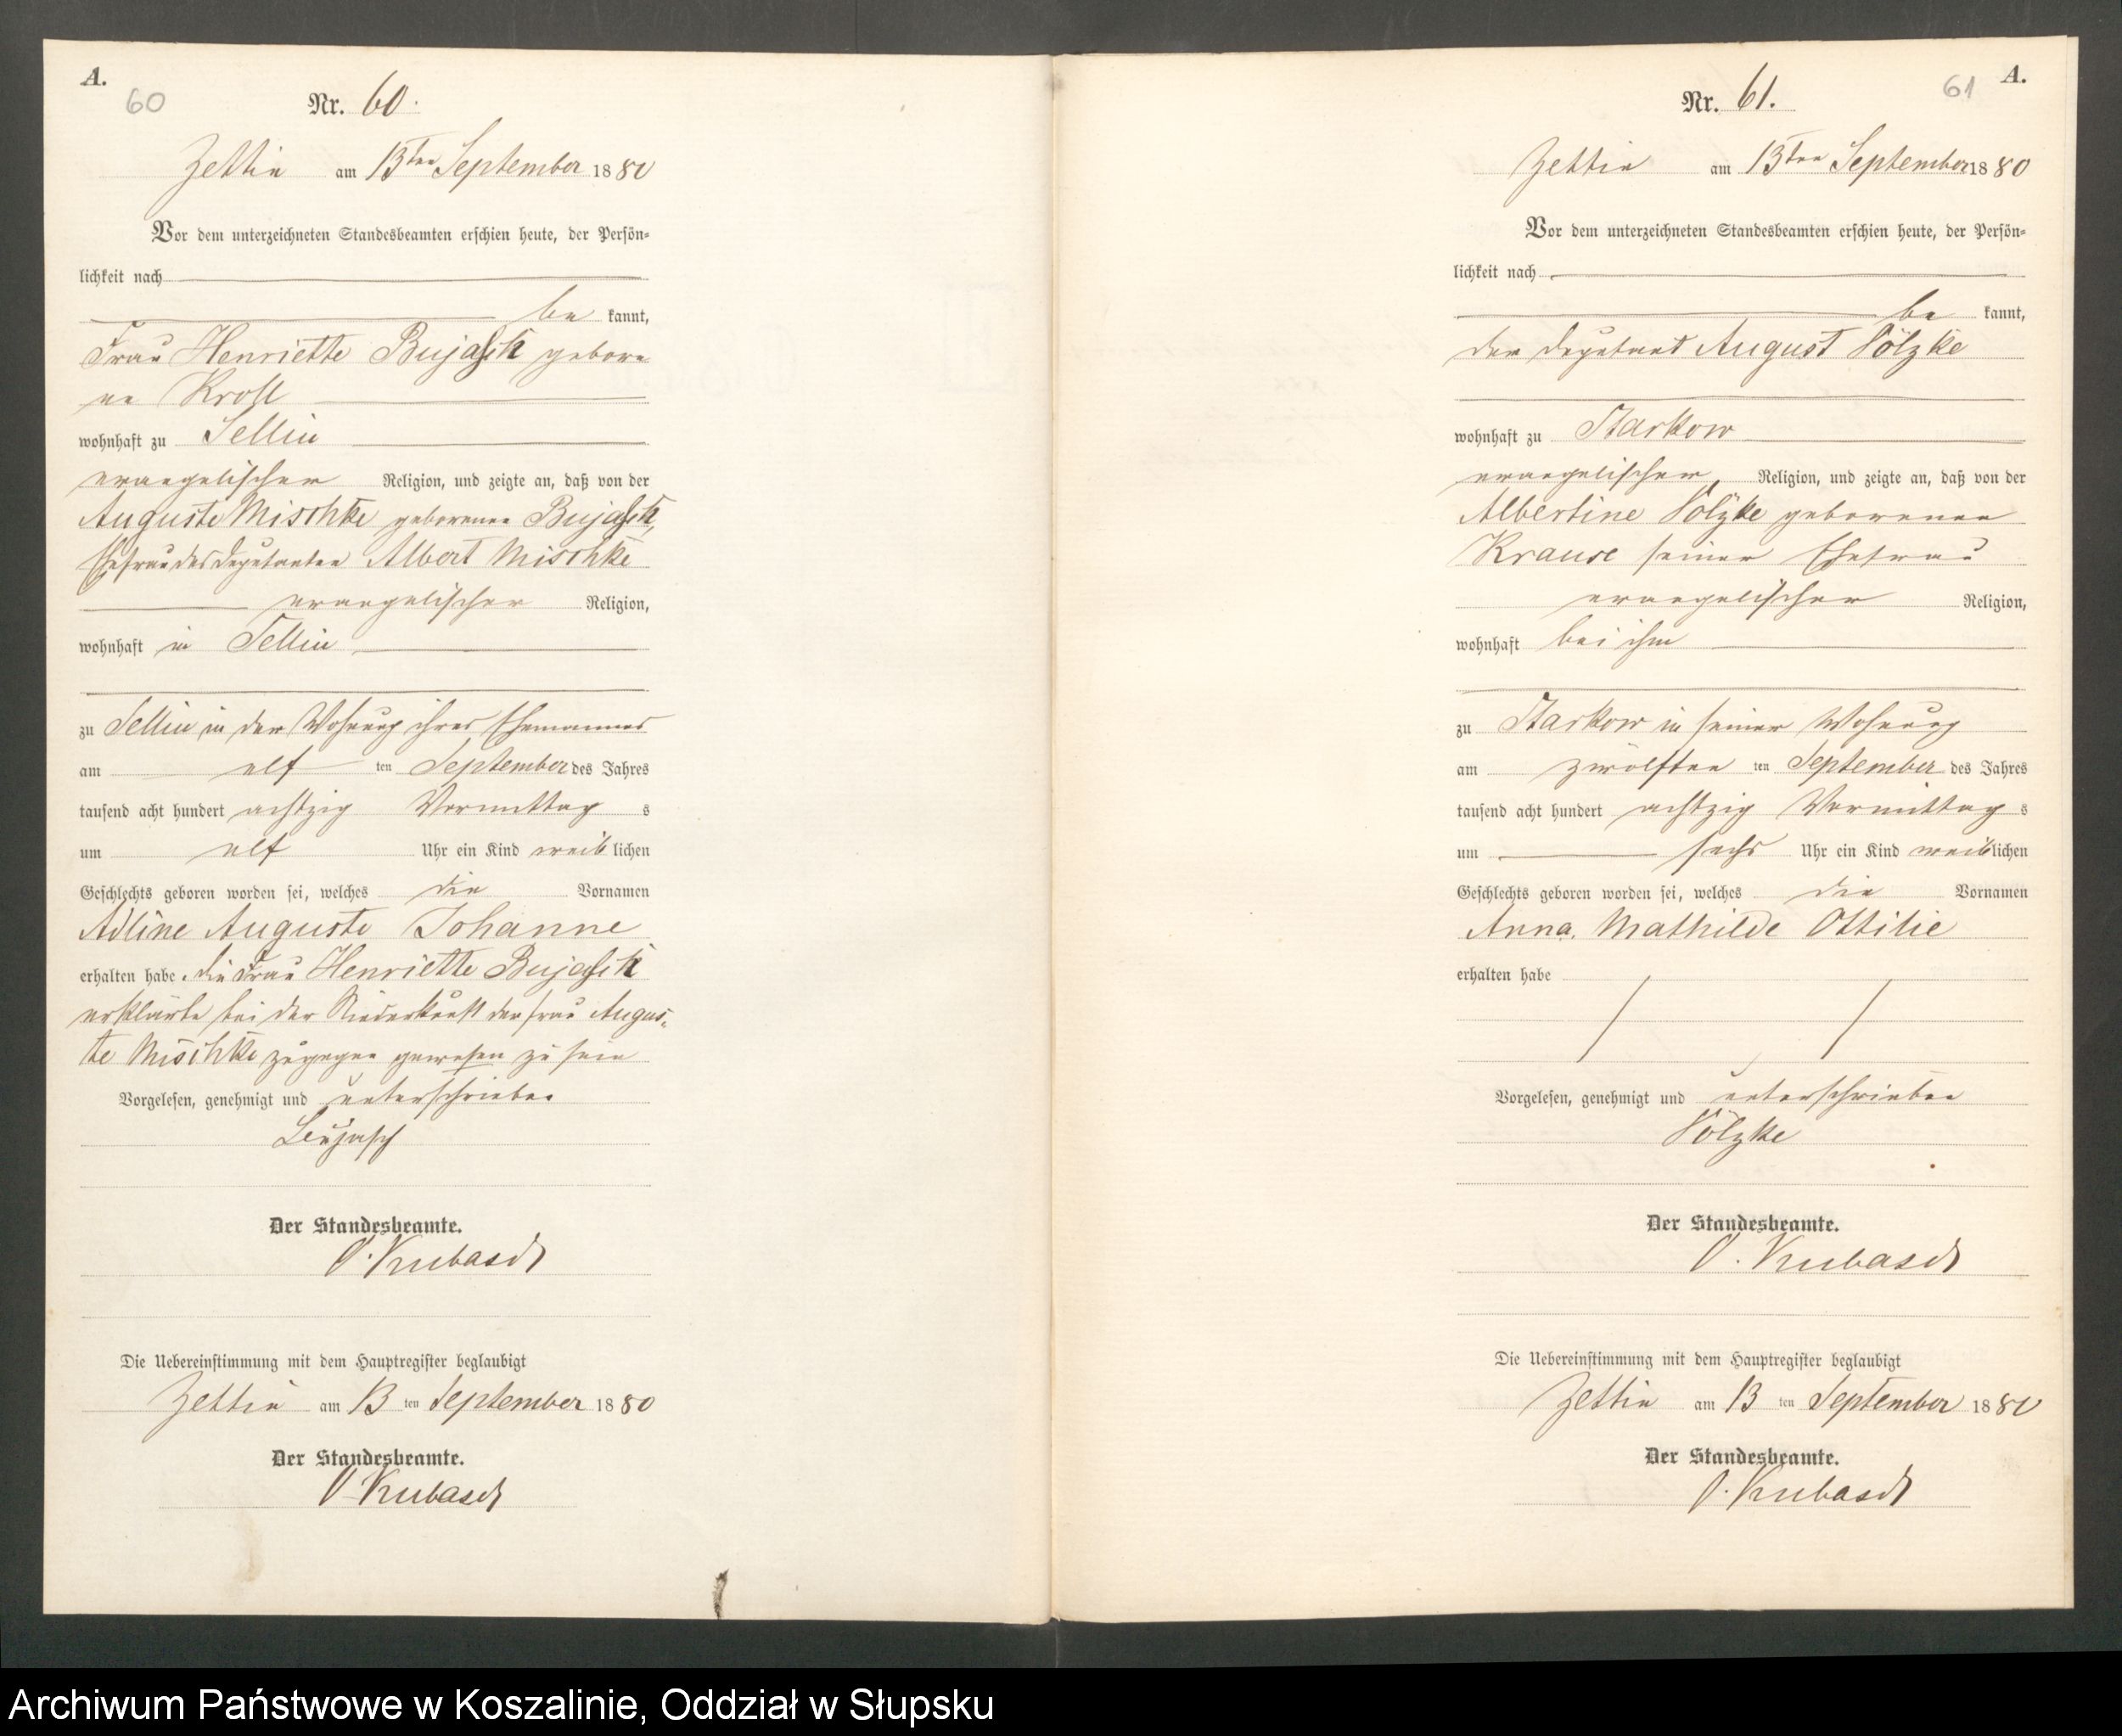 A.
60
Nr. 60.
Zettin am 13ten September 1880
Vor dem unterzeichneten Standesbeamten erschien heute, der Persön-
lichkeit nach
be kannt,
Frau Henriette Bujack gebore
ne Kroll
wohnhaft zu Sellin
evangelischer Religion, und zeigte an, daß von der
Auguste Mischke geborenen Bujack,
Ehefrau des Deputanten Albert Mischke
evangelischer Religion,
wohnhaft in Sellin
zu Sellin in der Wohnung ihres Ehemannes
am elf ten September des Jahres
tausend acht hundert achtzig Vormittag s
um elf Uhr ein Kind weib lichen
Geschlechts geboren worden sei, welches die Vornamen
Adline Auguste Johanne
erhalten habe. Die Frau Henriette Bujack
erklärte bei der Niederkunft der Frau Augus-
te Mischke zugegen gewesen zu sein
Vorgelesen, genehmigt und unterschrieben
Der Standesbeamte.
Die Uebereinstimmung mit dem Hauptregister beglaubigt
Zettin am 13 ten September 1880
Der Standesbeamte.
A.
61
Nr. 61.
Zettin am 13ten September 1880
Vor dem unterzeichneten Standesbeamten erschien heute, der Persön-
lichkeit nach
be kannt,
der Deputant August Völzke
wohnhaft zu Starkow
evangelischer Religion, und zeigte an, daß von der
Albertine Völzke geborenen
Krause seiner Ehefrau
evangelischer Religion,
wohnhaft bei ihm
zu Starkow in seiner Wohnung
am zwölften ten September des Jahres
tausend acht hundert achtzig Vormittag s
um sechs Uhr ein Kind weib lichen
Geschlechts geboren worden sei, welches die Vornamen
Anna Mathilde Ottilie
erhalten habe
Vorgelesen, genehmigt und unterschrieben
Völzke
Der Standesbeamte.
Die Uebereinstimmung mit dem Hauptregister beglaubigt
Zettin am 13 ten September 1880
Der Standesbeamte.
Archiwum Państwowe w Koszalinie, Oddział w Słupsku